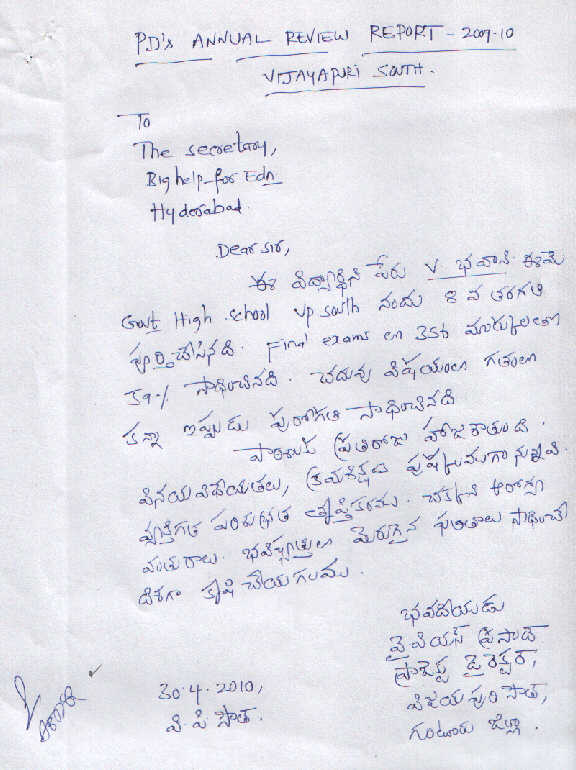 PD's ANNUAL REVIEW REPORT - 2009-10
VIJAYAPURI SOUTH.
To
The secretary,
Big help-for Edn
Hyderabad.
Dear sir,
ఈ విద్యార్థిని పేరు V భవాని ఈమె
Govt High school VP south నందు 8 వ తరగతి
పూర్తిచేసినది. Final exams లో 356 మార్కులతో
59% సాధించినది. చదువు విషయంలో గతంలో
కన్నా ఇప్పుడు పురోగతి సాధించినది
పాఠశాలకు ప్రతిరోజు హాజరౌతుంది.
వినయవిధేయతలు, క్రమశిక్షణ పుష్కలముగా నున్నవి.
వ్యక్తిగత పరిశుభ్రత తృప్తికరము. చక్కని ఆరోగ్య
వంతురాలు. భవిష్యత్తులో మెరుగైన ఫలితాలు సాధించే
దిశగా కృషి చేయగలము.
భవదీయుడు
వై వియస్ ప్రసాద్
ప్రాజెక్టు డైరెక్టర్,
విజయపురి సౌత్,
గుంటూరు జిల్లా.
30-4-2010,
వి. పి సౌత్.